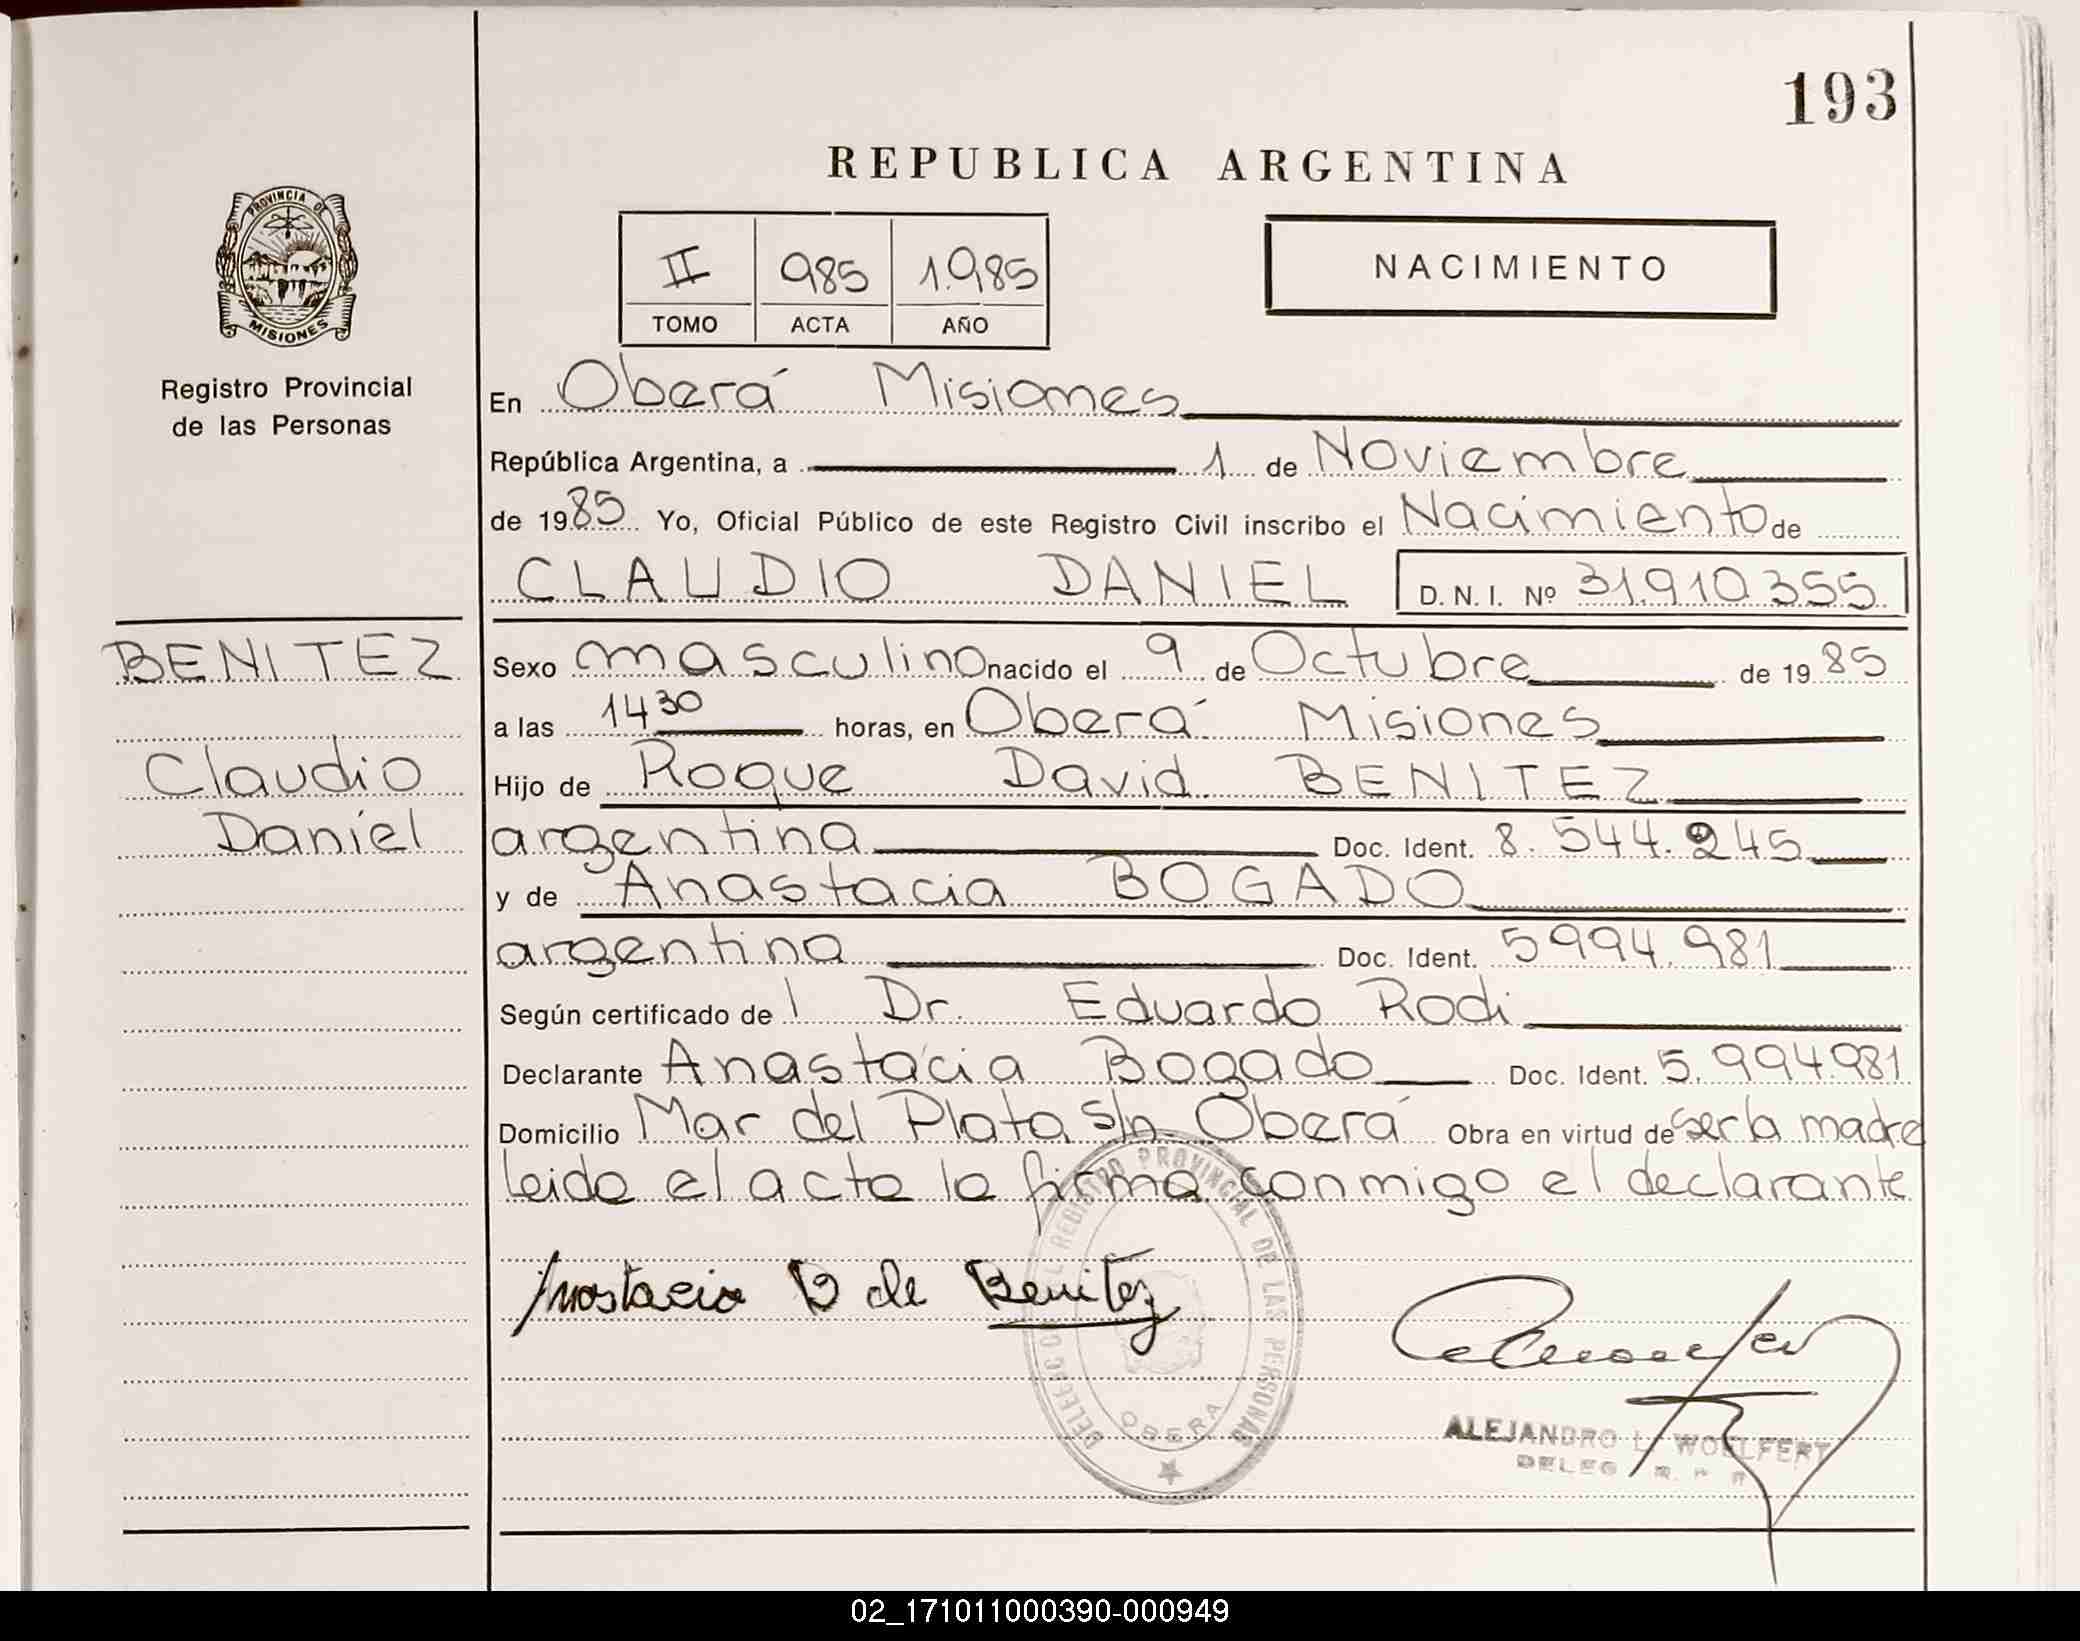 193
REPUBLICA ARGENTINA
PROVINCIA DE
MISIONES
Registro Provincial
de las Personas
II 985 1.985
TOMO ACTA AÑO
NACIMIENTO
En Oberá Misiones
República Argentina, a 1 de Noviembre
de 1985 Yo, Oficial Público de este Registro Civil inscribo el Nacimiento de
CLAUDIO DANIEL D. N. I. Nº 31.910.355
BENITEZ
Claudio
Daniel
Sexo masculino nacido el 9 de Octubre de 1985
a las 14 30 horas, en Oberá Misiones
Hijo de Roque David BENITEZ
argentina Doc. Ident. 8.544.245
y de Anastacia BOGADO
argentina Doc. Ident. 5994.981
Según certificado de l Dr. Eduardo Rodi
Declarante Anastacia Bogado Doc. Ident. 5.994.981
Domicilio Mar del Plata s/n Oberá Obra en virtud de ser la madre
leida el acta la firma conmigo el declarante
Anastacia B de Benitez
REGISTRO PROVINCIAL DE LAS PERSONAS
OBERA
ALEJANDRO L. WOELFERT
DELEG R. P. P.
02_171011000390-000949